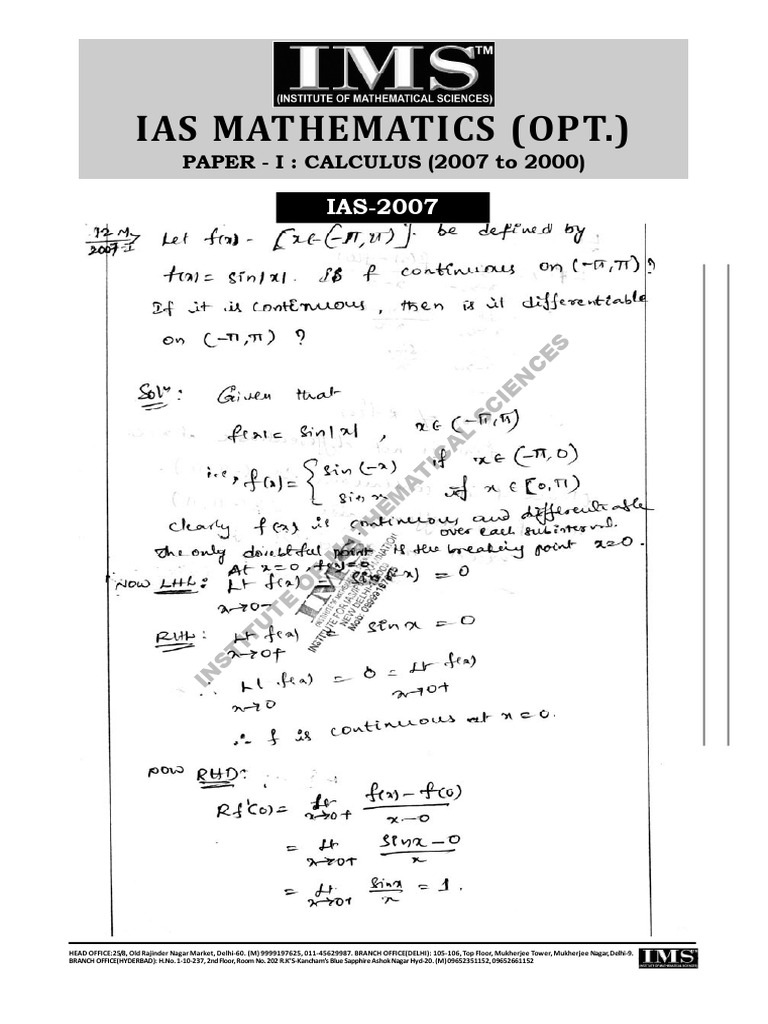 IMS™
(INSTITUTE OF MATHEMATICAL SCIENCES)
IAS MATHEMATICS (OPT.)
PAPER - I : CALCULUS (2007 to 2000)
IAS-2007
12 M
2007-I
Let f(x) - [x∈(-π,π)]. be defined by
f(x) = sin|x|. Is f continuous on (-π,π)?
If it is continuous, then is it differentiable
on (-π,π) ?
Solⁿ: Given that
f(x) = sin|x| , x∈(-π,π)
i.e., f(x) = { sin(-x) if x∈(-π,0)
sin x if x∈[0,π)
clearly f(x) is continuous and differentiable
over each subinterval.
The only doubtful point is the breaking point x=0.
At x=0, f(x)=0
NOW LHL: Lt f(x) = sin(-x) = 0
x→0-
RHL: Lt f(x) = sinx = 0
x→0+
∴ Lt f(x) = 0 = Lt f(x)
x→0 x→0+
∴ f is continuous at x=0.
NOW RHD:
Rf'(0) = Lt x→0+ (f(x) - f(0))/(x-0)
= Lt x→0+ (sinx - 0)/x
= Lt x→0+ sinx/x = 1.
INSTITUTE OF MATHEMATICAL SCIENCES
HEAD OFFICE:25/8, Old Rajinder Nagar Market, Delhi-60. (M) 9999197625, 011-45629987. BRANCH OFFICE(DELHI): 105-106, Top Floor, Mukherjee Tower, Mukherjee Nagar, Delhi-9.
BRANCH OFFICE(HYDERBAD): H.No. 1-10-237, 2nd Floor, Room No. 202 R.K'S-Kancham's Blue Sapphire Ashok Nagar Hyd-20. (M)09652351152, 09652661152
IMS™
(INSTITUTE OF MATHEMATICAL SCIENCES)